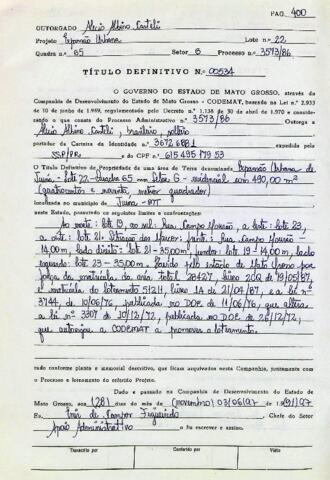 PAG. 400
OUTORGADO Alicio Albino Casteli
Projeto Expansão Urbana Lote n.o 22
Quadra n.o 65 Setor G Processo n.o 3573/86
TÍTULO DEFINITIVO N.o 00534
O GOVERNO DO ESTADO DE MATO GROSSO, através da
Companhia de Desenvolvimento do Estado de Mato Grosso - CODEMAT, baseado na Lei n.o 2.933
de 10 de junho de 1969, regulamentado pelo Decreto n.o 1.138 de 30 de abril de 1970 e considerando
o que consta do Processo Administrativo n.o 3573/86 Outorga a
Alicio Albino Casteli, brasileiro, solteiro
portador da Carteira de Identidade n.o 3672688 1
SSP/PR e do CPF n.o 615495179 53
O Título Definitivo de Propriedade de uma área de Terra denominada Expansão Urbana de
Juína - Lote 22 - Quadra 65 Setor G - residencial com 490,00 m²
(quatrocentos e noventa, metros quadrados)
localizada no município de Juína - MT
neste Estado, possuindo os seguintes limites e confrontações:
Ao norte: lote 19, ao sul: Rua Campo Mourão, a leste: lote 23,
a oeste: lote 21. frente: Rua Campo Mourão -
14,00m, lado direito: lote 21 - 35,00m, fundos: lote 19 - 14,00m, lado
esquerdo: lote 23 - 35,00m. Havido pelo Estado de Mato Grosso por
força da matrícula da área total 28427, livro 2 de 19/05/87,
e matrícula do loteamento 51211, livro 1A de 21/04/87, e a lei nº
3744, de 10/06/76, publicada no DOE de 11/06/76, que altera
a lei nº 3307 de 10/12/72, publicada no DOE de 26/12/72,
que autoriza a CODEMAT a promover o loteamento.
tudo conforme planta e memorial descritivo, que ficam arquivados nesta Companhia, juntamente com
o Processo e loteamento do referido Projeto.
Dado e passado na Companhia de Desenvolvimento do Estado de
Mato Grosso, aos (28) dias do mês de (novembro) 03/06/97 de
Eu, Inês de Campos Figueiredo Chefe do Setor
Apoio Administrativo o fiz escrever e assino.
Transcrito por Conferido por Visto